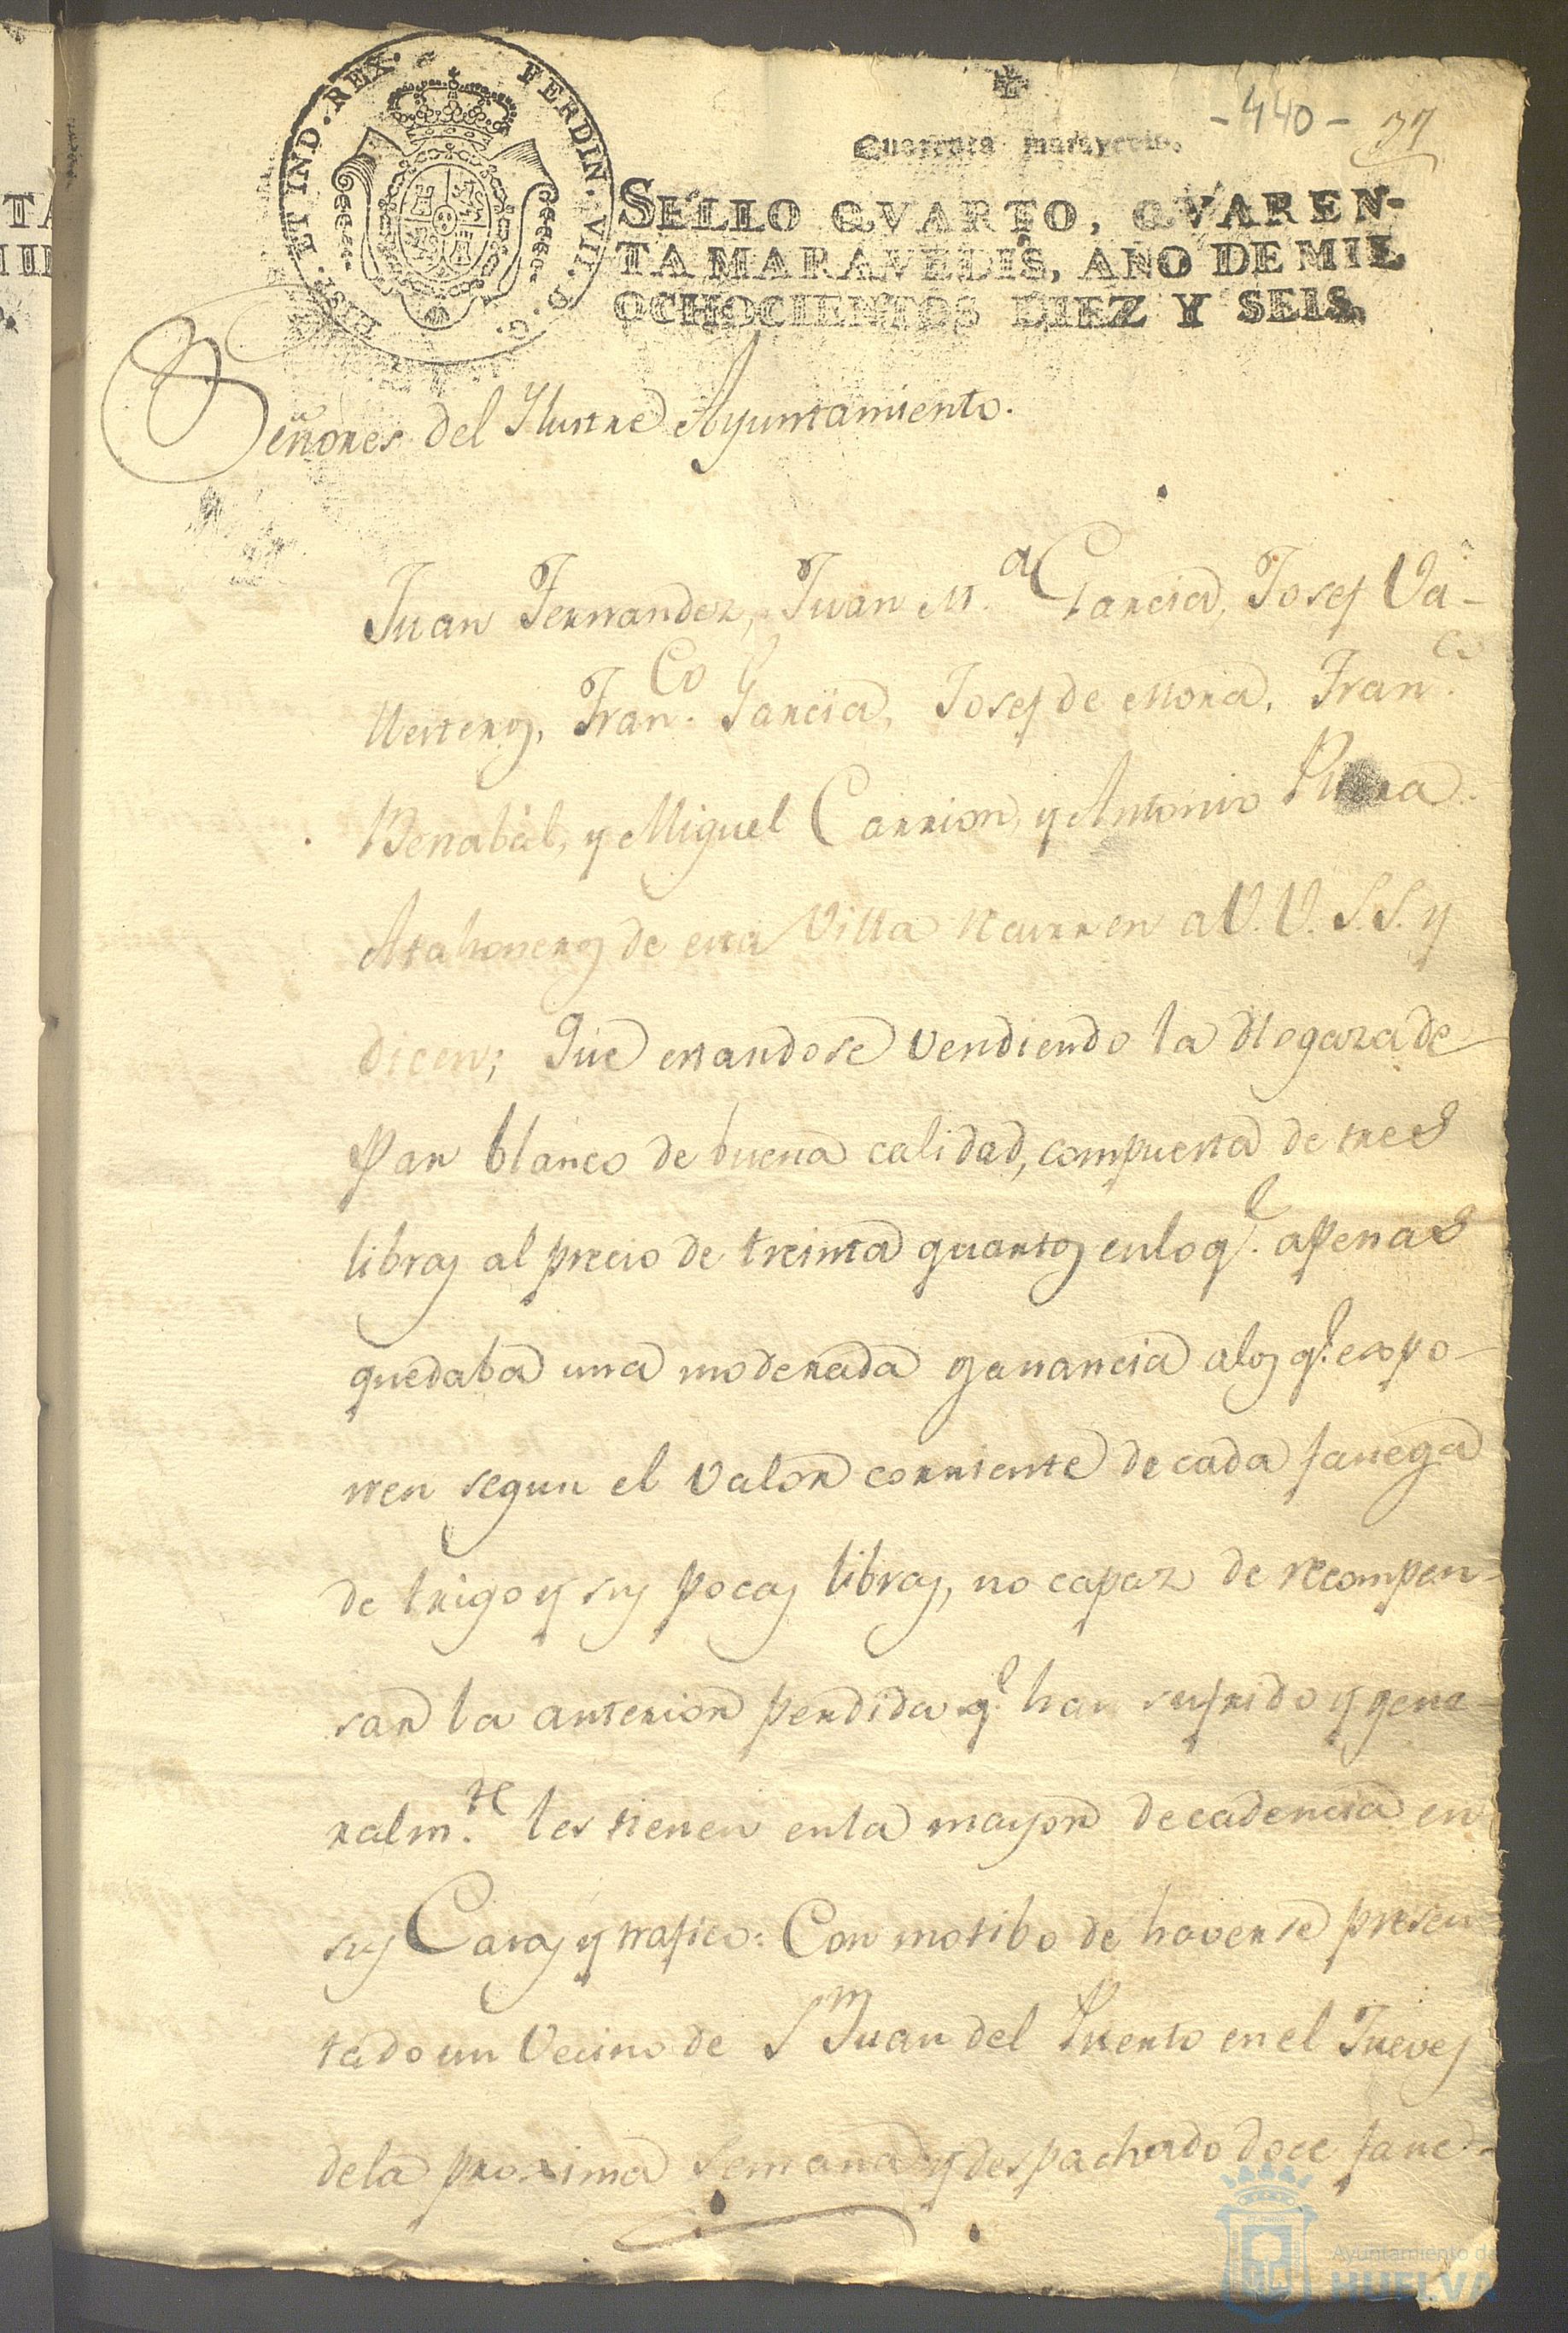 HISP. ET IND. REX. FERDIN. VII. D. G.
- 440 - 77
Quarenta maravedis.
SELLO QVARTO, QVAREN-
TA MARAVEDIS, AÑO DE MIL
OCHOCIENTOS DIEZ Y SEIS.
Señores del Ilustre Ayuntamiento.
Juan Fernandez, Juan M.a Garcia, Josef Va-
llesteros, Fran.co Garcia, Josef de Mora, Fran.co
Benabàt, y Miguel Carrion, y Antonio
Atahoneros de esta Villa recurren a V.V. S.S. y
dicen; Que estandose vendiendo la Hogaza de
Pan blanco de buena calidad, compuesta de tres
libras al precio de treinta quartos en lo q.e apenas
quedaba una moderada ganancia a los q.e expo-
nen segun el valor corriente de cada fanega
de trigo y sus pocas libras, no capaz de recompen-
sar la anterior perdida q.e han sufrido y gene-
ralm.te les tienen en la mayor decadencia en
sus Casas y trafico: Con motibo de haverse presen-
tado un Vecino de S.n Juan del Puerto en el Jueves
de la proxima Semana y despachado doce fane-
Ayuntamiento de
HUELVA